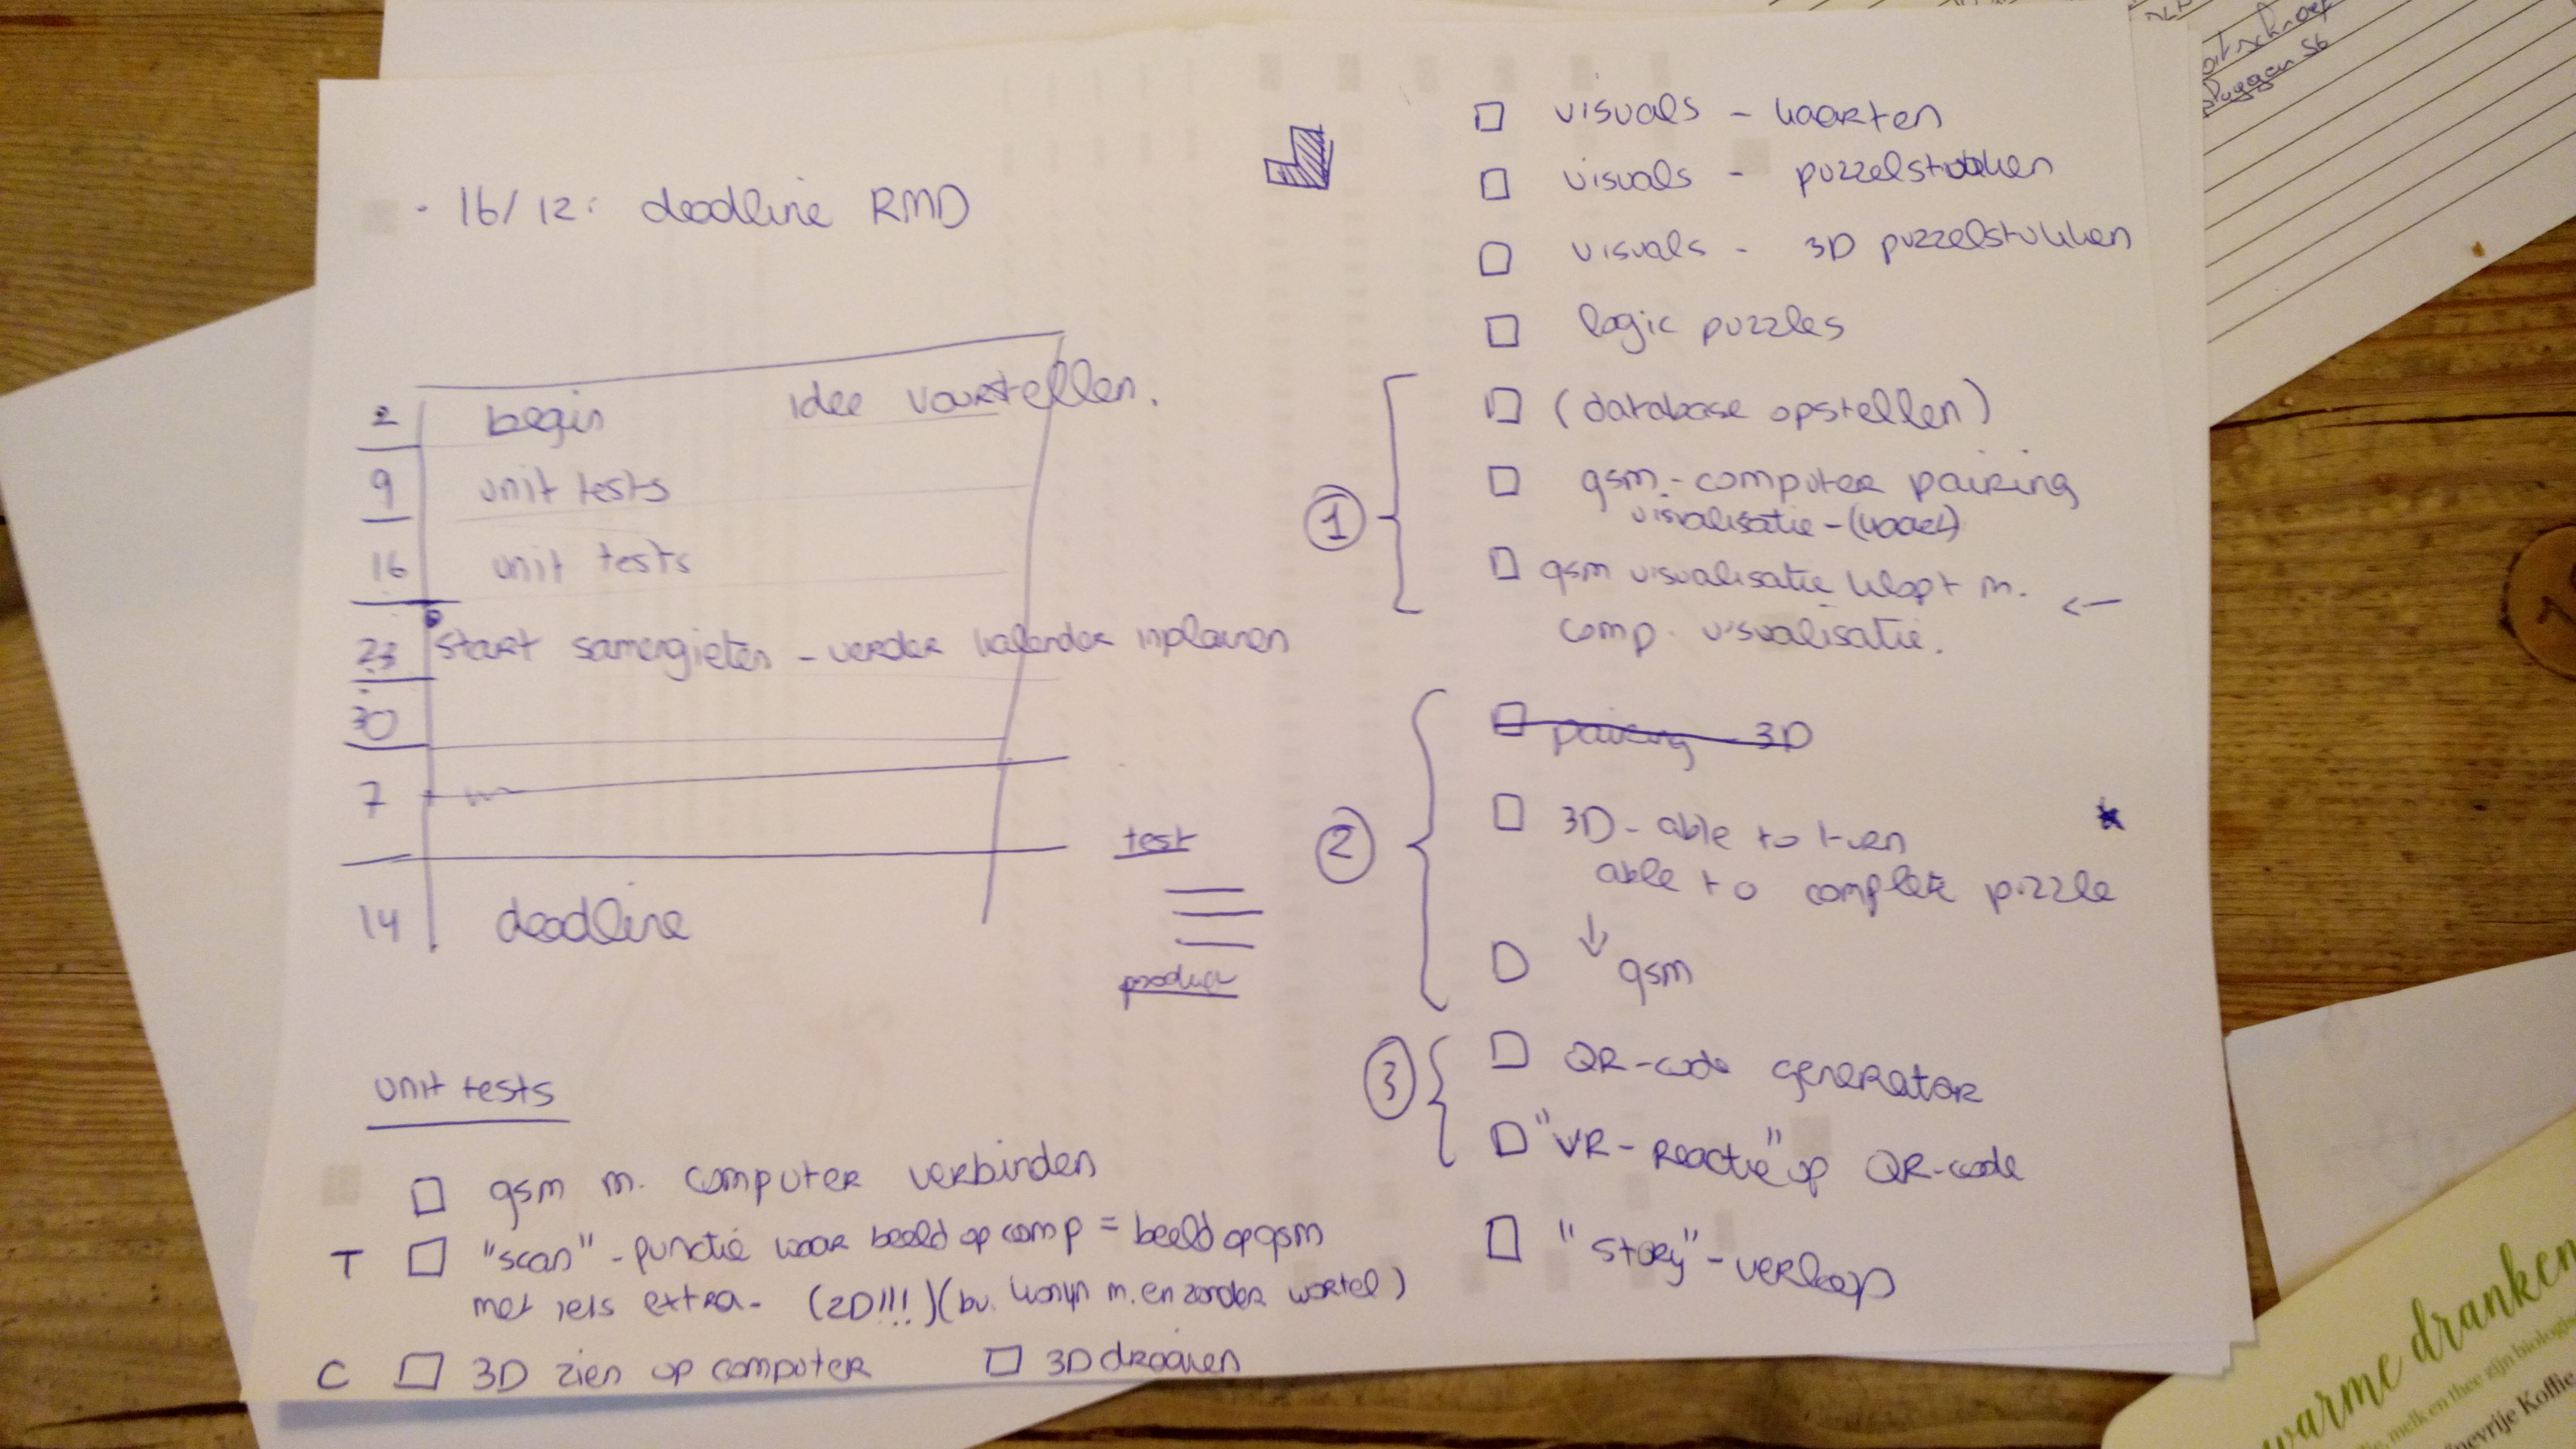 - 16/12: deadline RMD
2 begin idee voorstellen.
9 unit tests
16 unit tests
23 start samengieten - verder kalender inplannen
30
7
14 deadline
test
product
unit tests
gsm m. computer verbinden
T "scan" - functie waar beeld op comp = beeld op gsm
met iets extra - (2D!!!) (bv. konijn m. en zonder wortel)
C 3D zien op computer
3D draaien
visuals - kaarten
visuals - puzzelstukken
visuals - 3D puzzelstukken
logic puzzles
1
(database opstellen)
gsm - computer pairing
visualisatie - (kaart)
gsm visualisatie klopt m. ←
comp. visualisatie.
2
pairing 3D
3D - able to turn
able to complete puzzle
↓ gsm
3
QR-code generator
"VR-reactie" op QR-code
"story" - verloop
pluggen S6
warme dranken
melk en thee zijn biologisc
Koffie